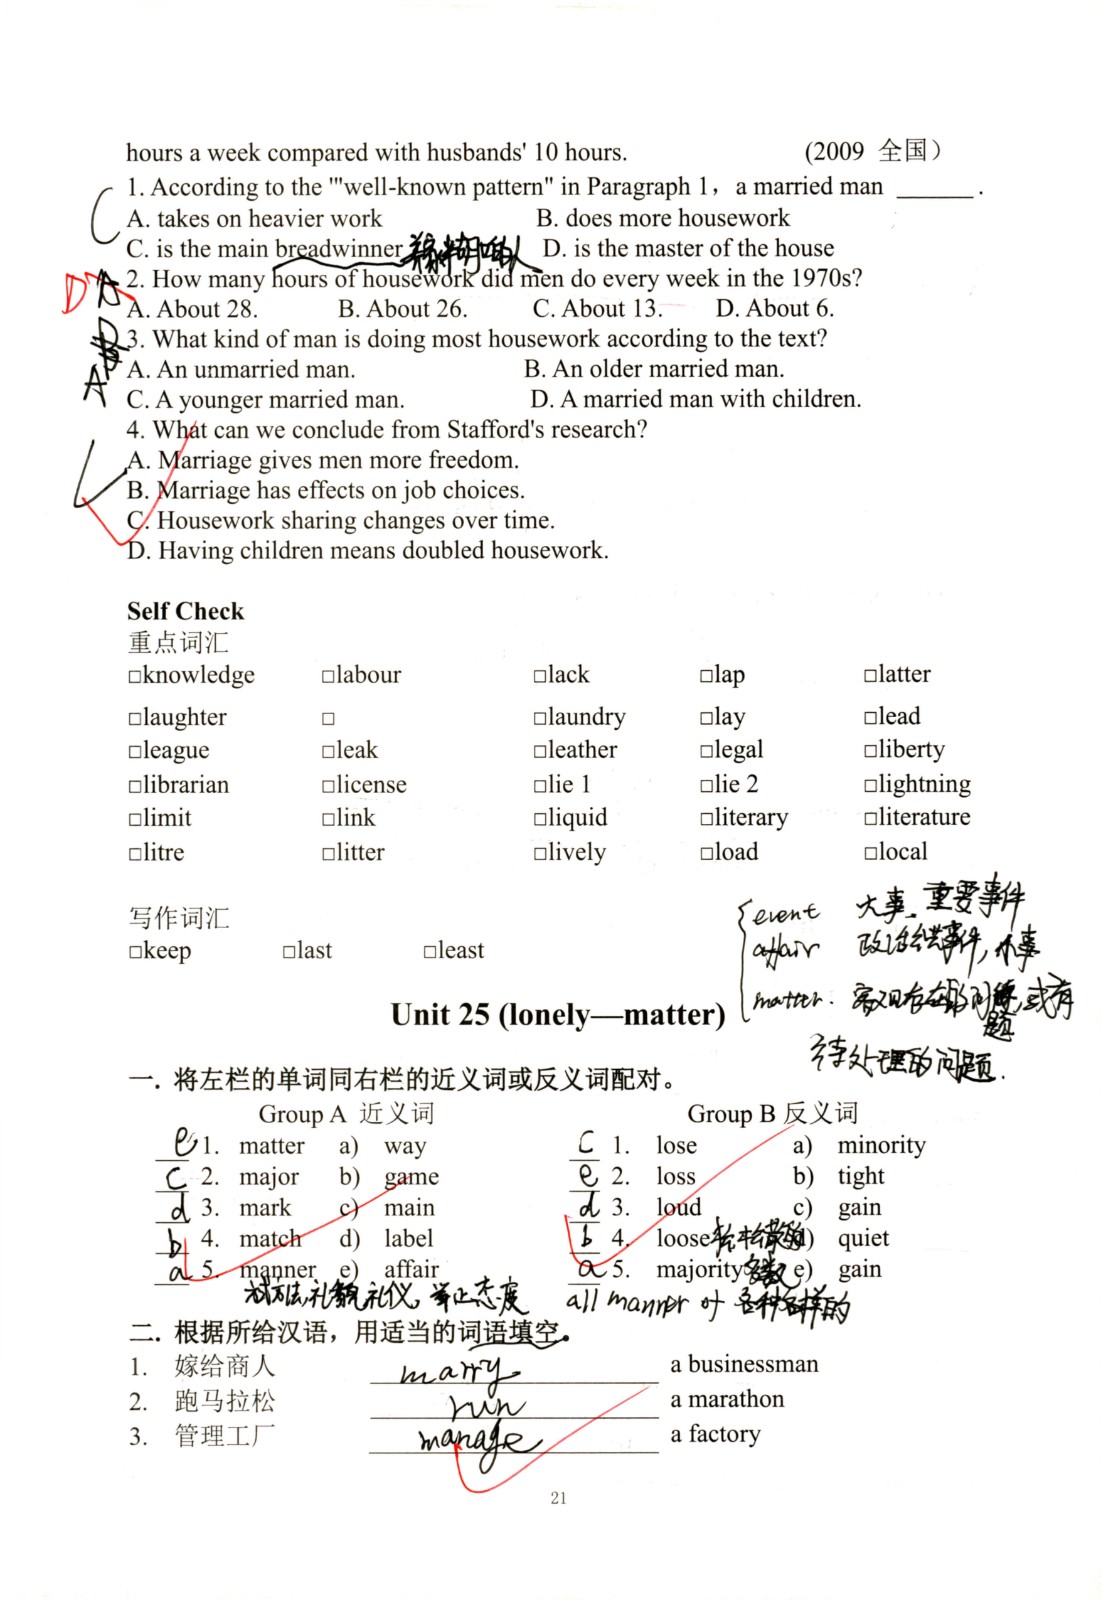 hours a week compared with husbands' 10 hours. (2009 全国)
C 1. According to the '"well-known pattern" in Paragraph 1, a married man ______ .
A. takes on heavier work B. does more housework
C. is the main breadwinner D. is the master of the house
D A 2. How many hours of housework did men do every week in the 1970s?
A. About 28. B. About 26. C. About 13. D. About 6.
3. What kind of man is doing most housework according to the text?
A A. An unmarried man. B. An older married man.
C. A younger married man. D. A married man with children.
4. What can we conclude from Stafford's research?
A. Marriage gives men more freedom.
B. Marriage has effects on job choices.
C. Housework sharing changes over time.
D. Having children means doubled housework.
Self Check
重点词汇
□knowledge □labour □lack □lap □latter
□laughter □ □laundry □lay □lead
□league □leak □leather □legal □liberty
□librarian □license □lie 1 □lie 2 □lightning
□limit □link □liquid □literary □literature
□litre □litter □lively □load □local
写作词汇
□keep □last □least
event 大事、重要事件
affair 政治公共事件,小事
matter: 客观存在的问题,或有
待处理的问题.
Unit 25 (lonely—matter)
一. 将左栏的单词同右栏的近义词或反义词配对。
Group A 近义词 Group B 反义词
e 1. matter a) way c 1. lose a) minority
c 2. major b) game e 2. loss b) tight
d 3. mark c) main d 3. loud c) gain
b 4. match d) label b 4. loose d) quiet
a 5. manner e) affair a 5. majority 多数 e) gain
方法,礼貌,礼仪,举止态度 all manner of 各种各样的
二. 根据所给汉语，用适当的词语填空。
1. 嫁给商人 marry a businessman
2. 跑马拉松 run a marathon
3. 管理工厂 manage a factory
21